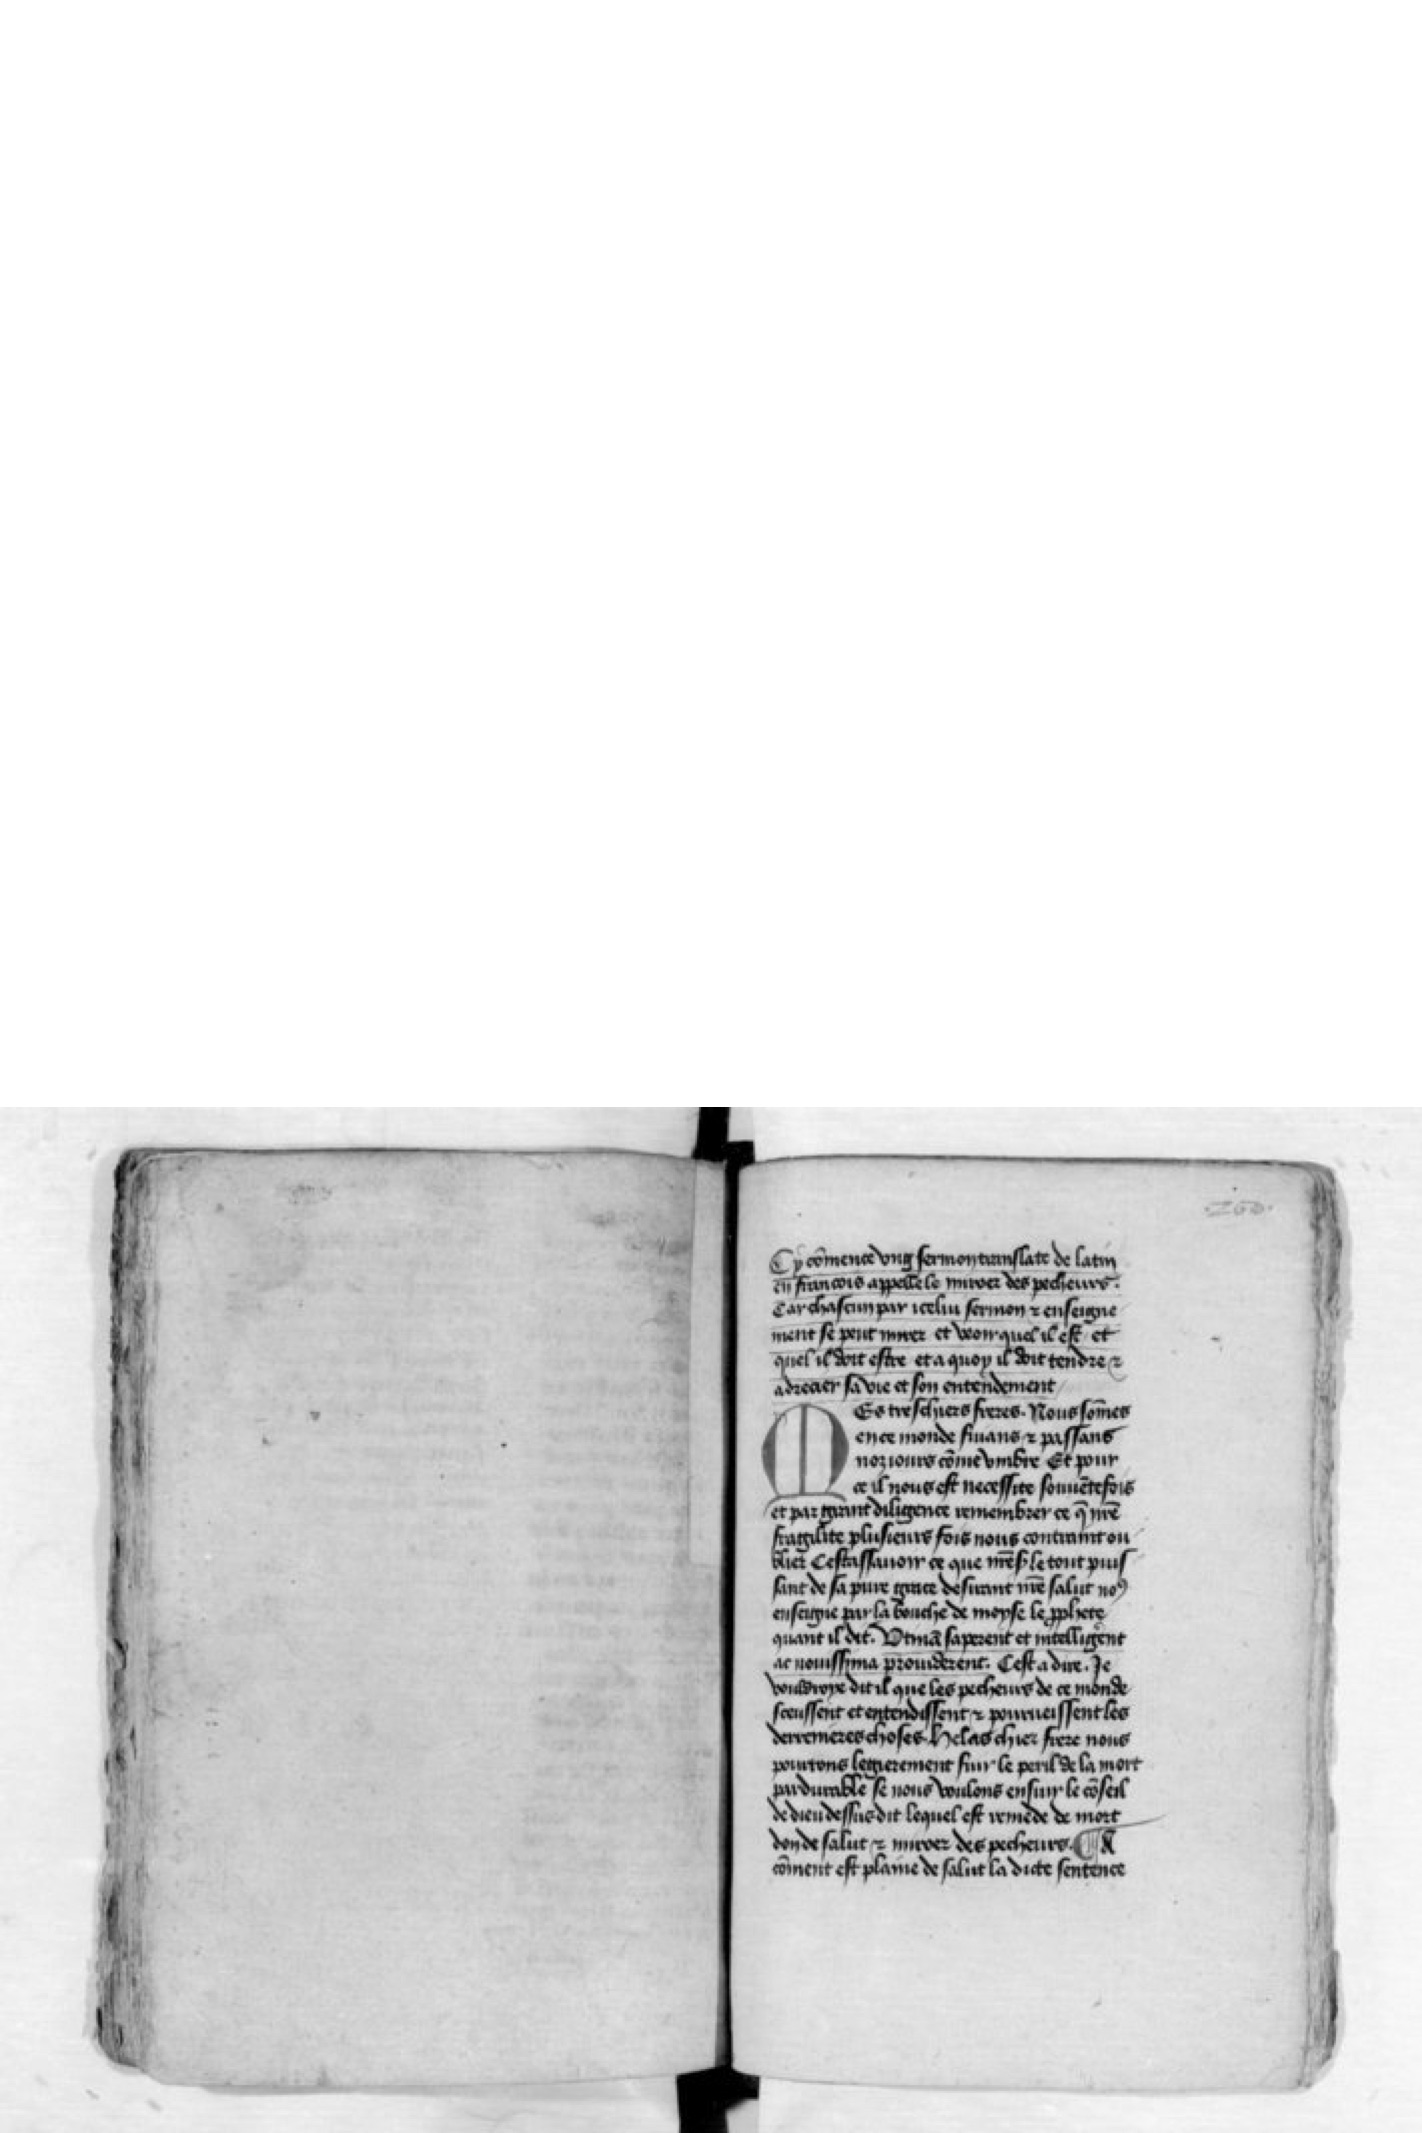 Cy cōmence vng sermon translate de latin
en francois appelle le miroer des pecheurs.
Car chascun par icelui sermon ⁊ enseigne
ment se peut mirer et veoir quel il est et
quel il doit estre et a quoy il doit tendre ⁊
adrecier sa vie et son entendement
MEs treschiers freres. Nous sōmes
en ce monde fuians ⁊ passans
noz iours cōme vmbre Et pour
ce il nous est necessite souuētefois
et par grant diligence remembrer ce q̄ nr̄e
fragilite plusieurs fois nous contraint ou
blier Cestassauoir ce que nr̄e s̄ le tout puis
sant de sa pure grace desirant nr̄e salut noꝰ
enseigne par la bouche de moyse le ꝓphete
quant il dit. Vtinā saperent et intelligerent
ac nouissima prouiderent. Cest a dire. Je
vouldroye dit il que les pecheurs de ce monde
sceussent et entendissent ⁊ pourueissent les
derrenieres choses. Helas chier frere nous
pourrons legierement fuir le peril de la mort
pardurable se nous voulons ensuir le cōseil
de dieu dessusdit lequel est remede de mort
don de salut ⁊ miroer des pecheurs. ¶ A
cōment est plaine de salut la dicte sentence